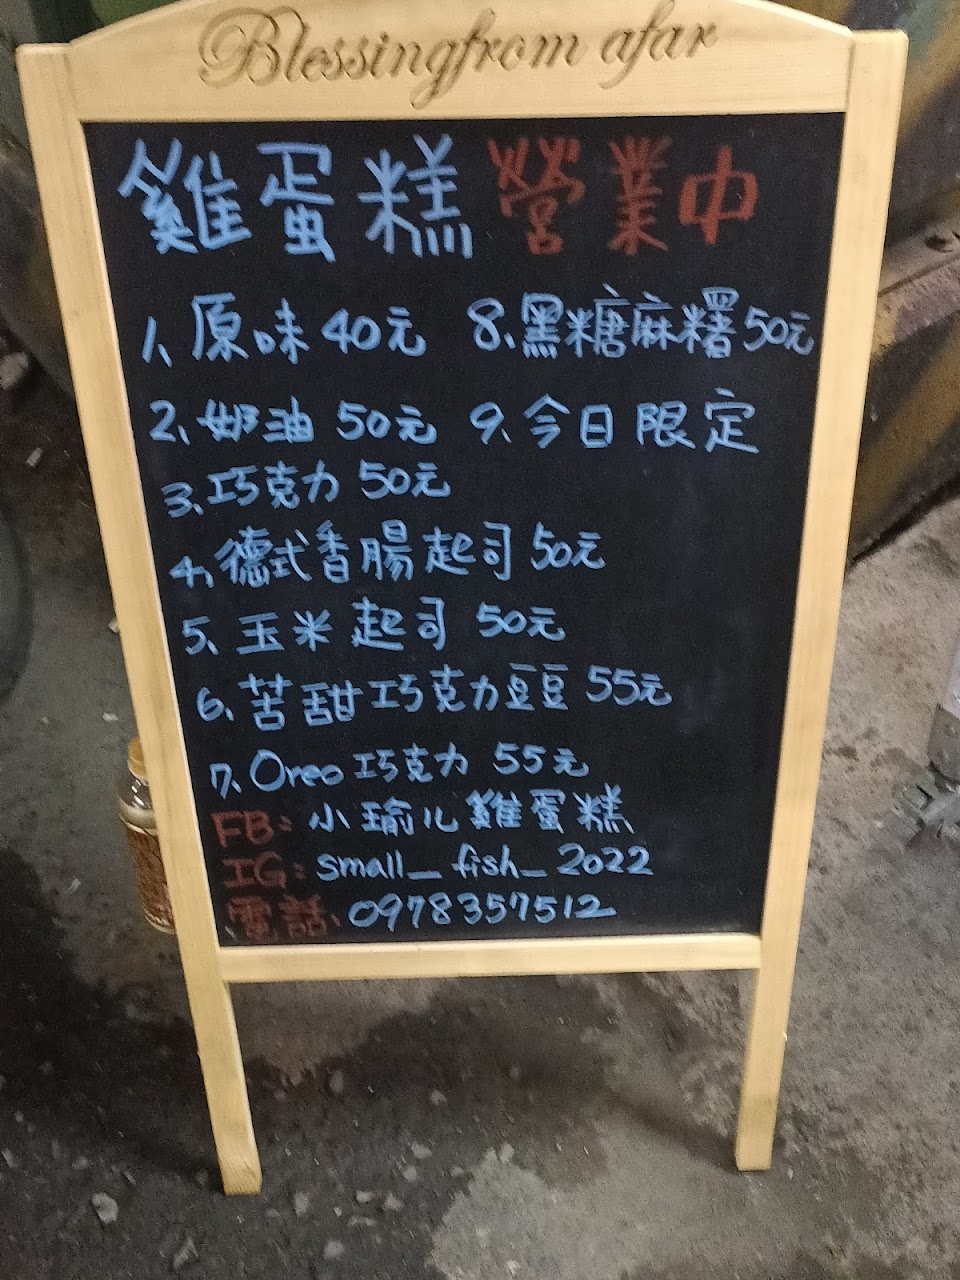 Blessingfrom afar
雞蛋糕 營業中
1、原味 40元
2、奶油 50元
3、巧克力 50元
4、德式香腸起司 50元
5、玉米起司 50元
6、苦甜巧克力豆豆 55元
7、Oreo巧克力 55元
8、黑糖麻糬50元
9、今日限定
FB：小瑜儿雞蛋糕
IG：small_fish_2022
電話、0978357512